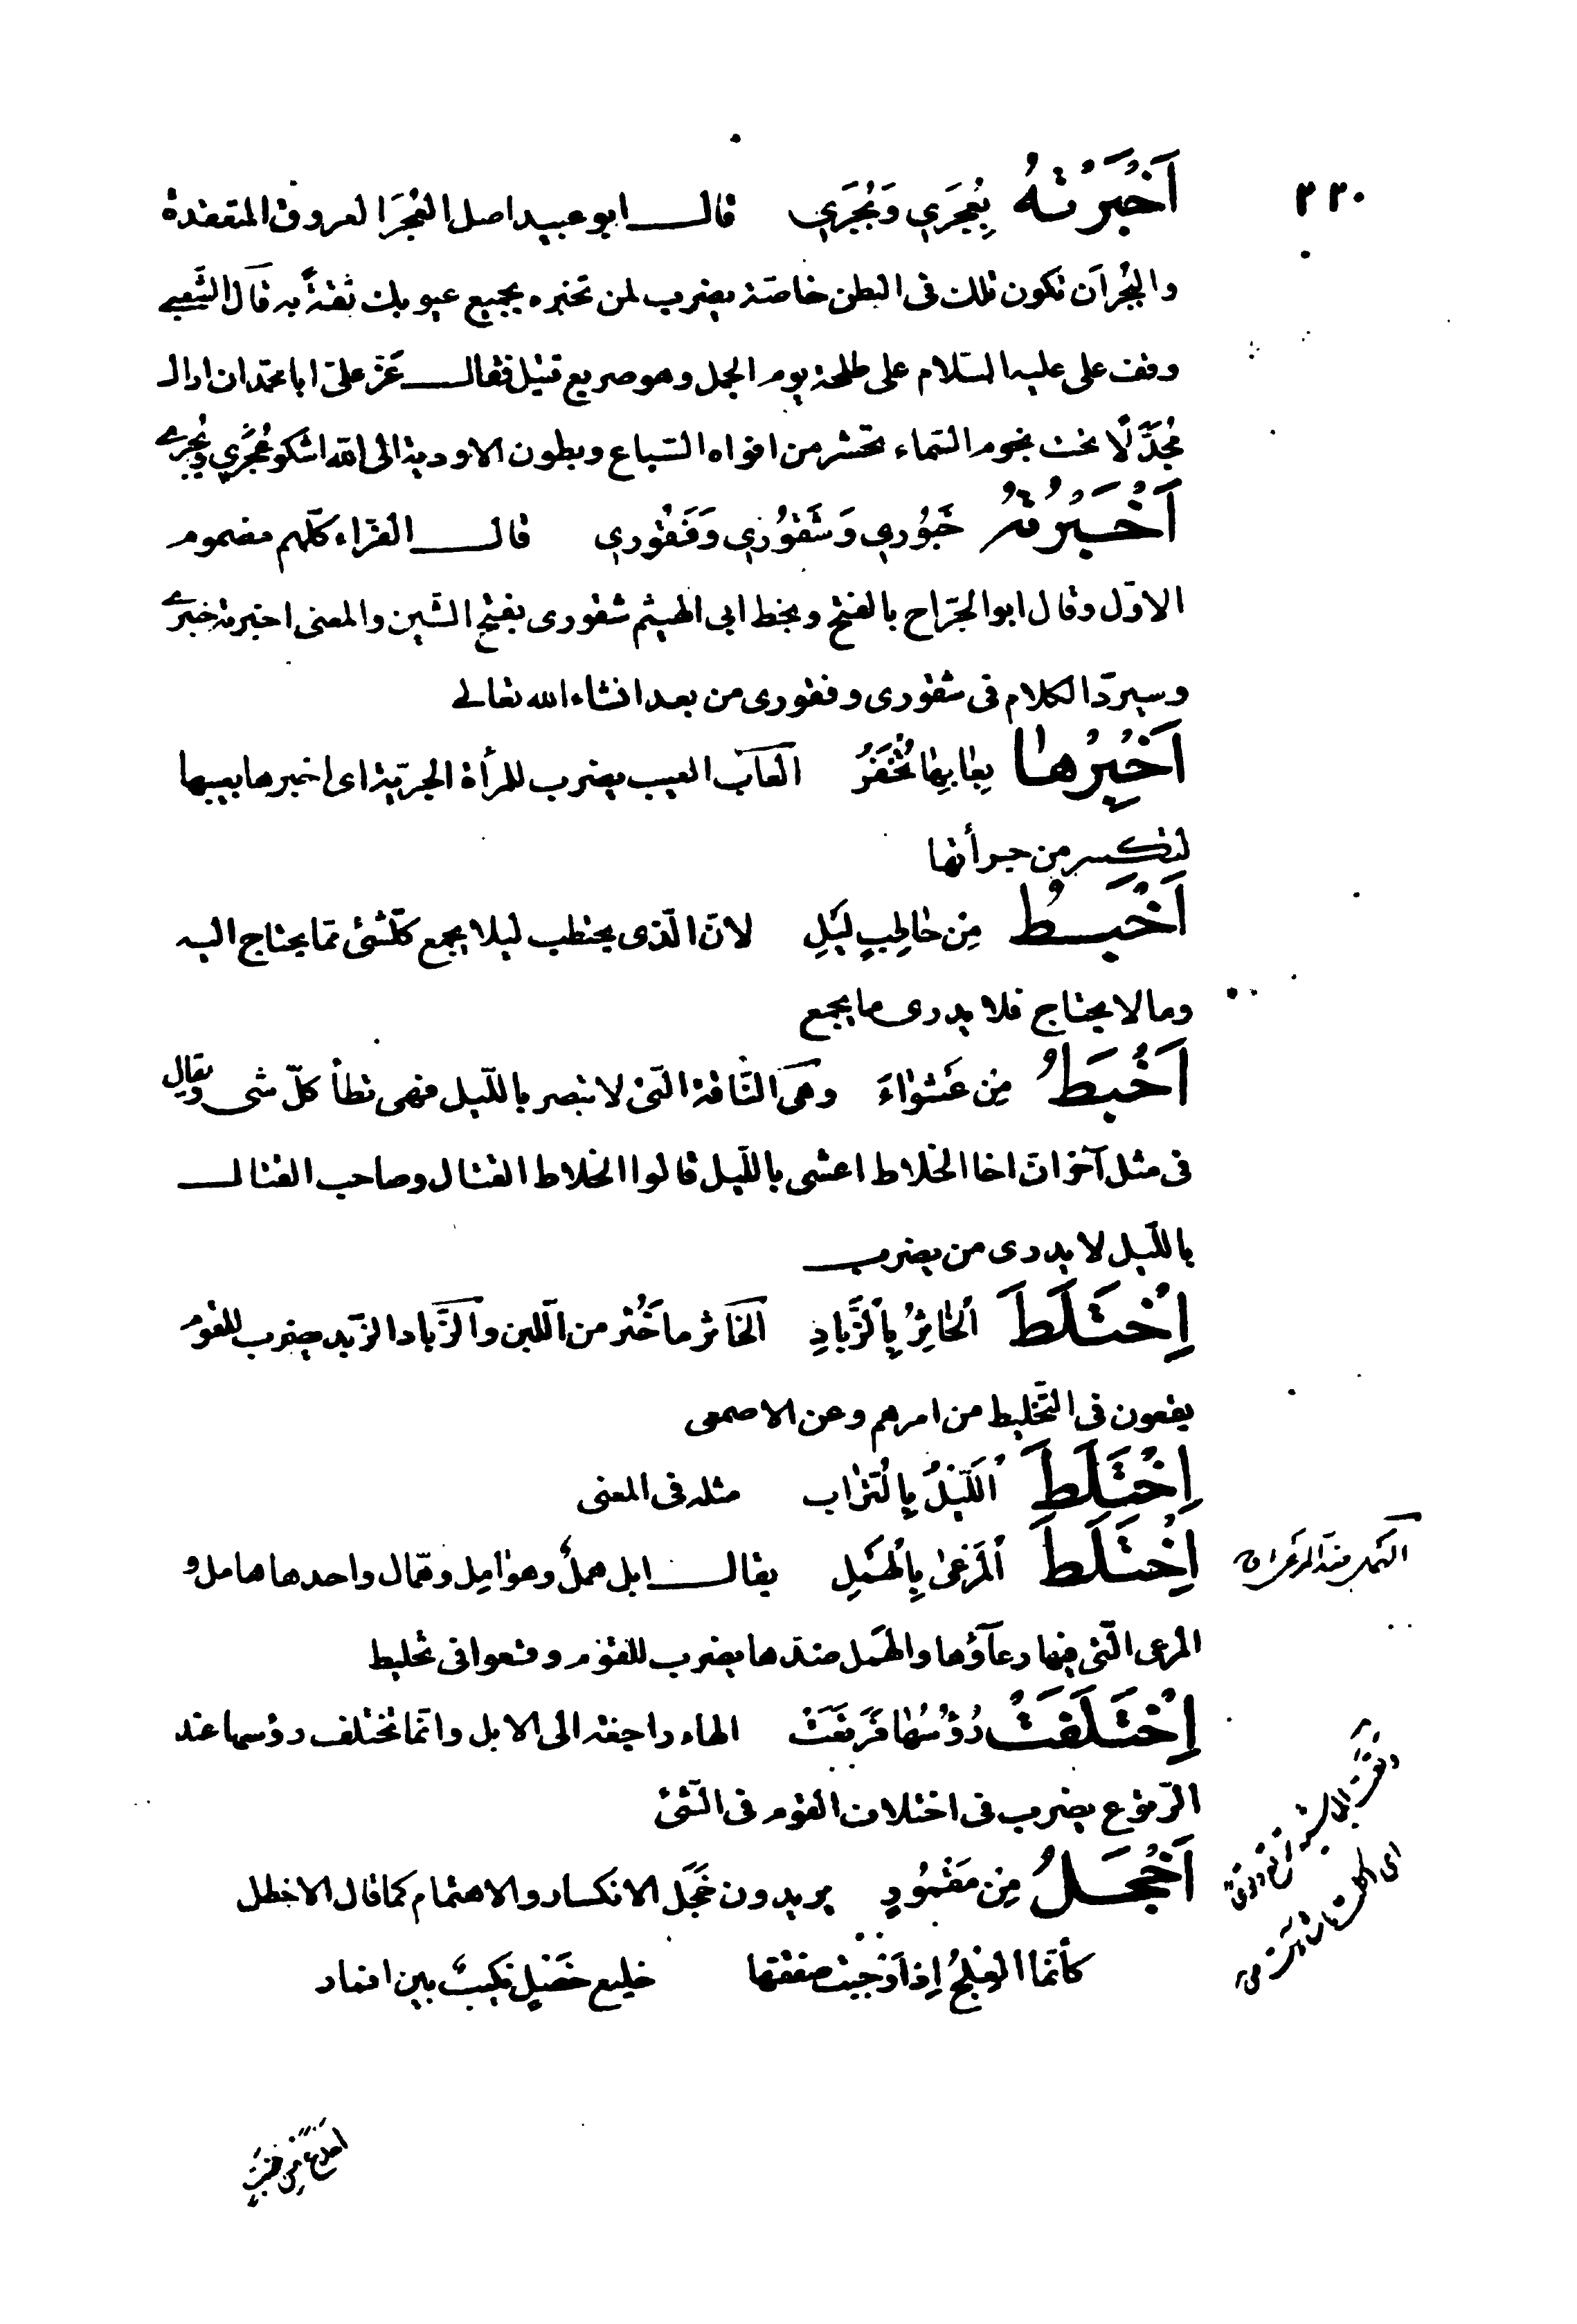 ٢٣٠
اَخْبَرْتُهُ بِعُجَرِي وَبُجَرِي قالـــ ابو عبيد اصل العُجَر العروق المتعقدة
والبُجَر ان تكون تلك فى البطن خاصّة يضرب لمن تخبره بجميع عيوبك ثقةً به قال الشّعبى
وقف على عليه السّلام على طلحة يوم الجمل وهو صريع قتيل فقالـــ عَزّ علىّ ابا محمّد ان اراك
مُجَدَّلًا تحت نجوم السّماء تحشر من افواه السّباع وبطون الاودية الى اللّه اشكو عُجَرِي وبُجَرِي
اَخْبَرْتُهُ خُبُورِي وَشُقُورِي وَفُقُورِي قالـــ الفرّاء كلّهم مضموم
الاوّل وقال ابو الجرّاح بالفتح وبخط ابى الهيثم شقورى بفتح الشّين والمعنى اخبرته خبرى
وسيردّ الكلام فى شقورى وفقورى من بعد انشاء الله تعالى
اَخْبِرْهَا بِعَابِهَا تَخْفَرُ العَاب العيب يضرب للمرأة الجريّة اى اخبرها بعيبها
لتكسر من جرأتها
اَخْبَـطُ مِنْ حَاطِبِ لَيْلِ لانّ الّذى يحتطب ليلا يجمع كلّشئ ممّا يحتاج اليه
وما لا يحتاج فلا يدرى ما يجمع
اَخْبَطُ مِنْ عَشْوَاءَ وهى النّاقة الّتى لا تبصر باللّيل فهى تطأ كلّ شى ويقال
فى مثل آخر انّ اخا الخلاط اعشى باللّيل قالوا الخلاط القتال وصاحب القتالـــ
باللّيل لا يدرى من يضرب
اِخْتَـلَطَ اَلْخَاثِرُ بِالزُّبَادِ الخَاثر ما خَثُر من اللبن والزّباد الزّبد يضرب للقوم
يقعون فى التّخليط من امرهم وعن الاصمعى
اِخْتَلَطَ اَللَّيْلُ بِالتُّرَابِ مثله فى المعنى
اِخْتَـلَطَ اَلْمَرْعَى بِالْهَمَلِ يقالـــ ابل هملٌ وهوامل وهمّال واحدها هامل و
المرعى الّتى فيها رعآؤها والهمل ضدّها يضرب للقوم وقعوا فى تخليط
اِخْتَـلَفَتْ رُؤُسُهَا فَرَتَعَتْ الهاء راجعة الى الابل وانّما تختلف رؤسها عند
الرّتوع يضرب فى اختلاف القوم فى الشّئ
اَخْجَـلُ مِنْ مَقْمُورٍ يريدون خَجَل الانكسار والاهتمام كما قال الاخطل
كأنّما العِلْجُ اِذ اَوْجبت صفقتها خليع خَصْلٍ نكيبٌ بين اقمار